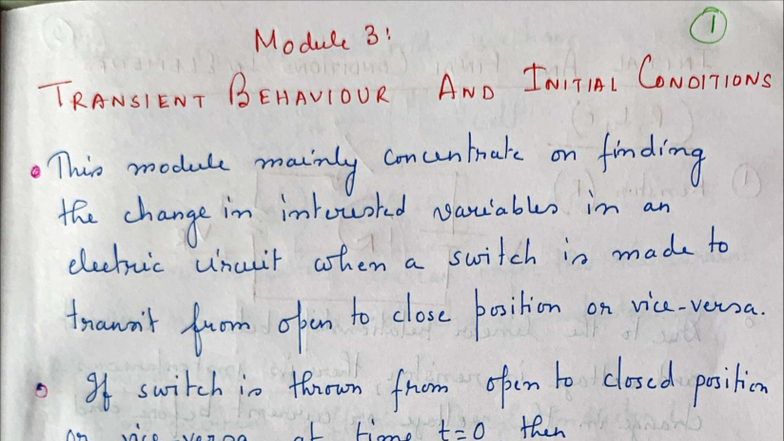 1
Module 3:
TRANSIENT BEHAVIOUR AND INITIAL CONDITIONS
This module mainly concentrate on finding
the change in interested variables in an
electric circuit when a switch is made to
transit from open to close position or vice-versa.
If switch is thrown from open to closed position
or vice versa at time t=0 then